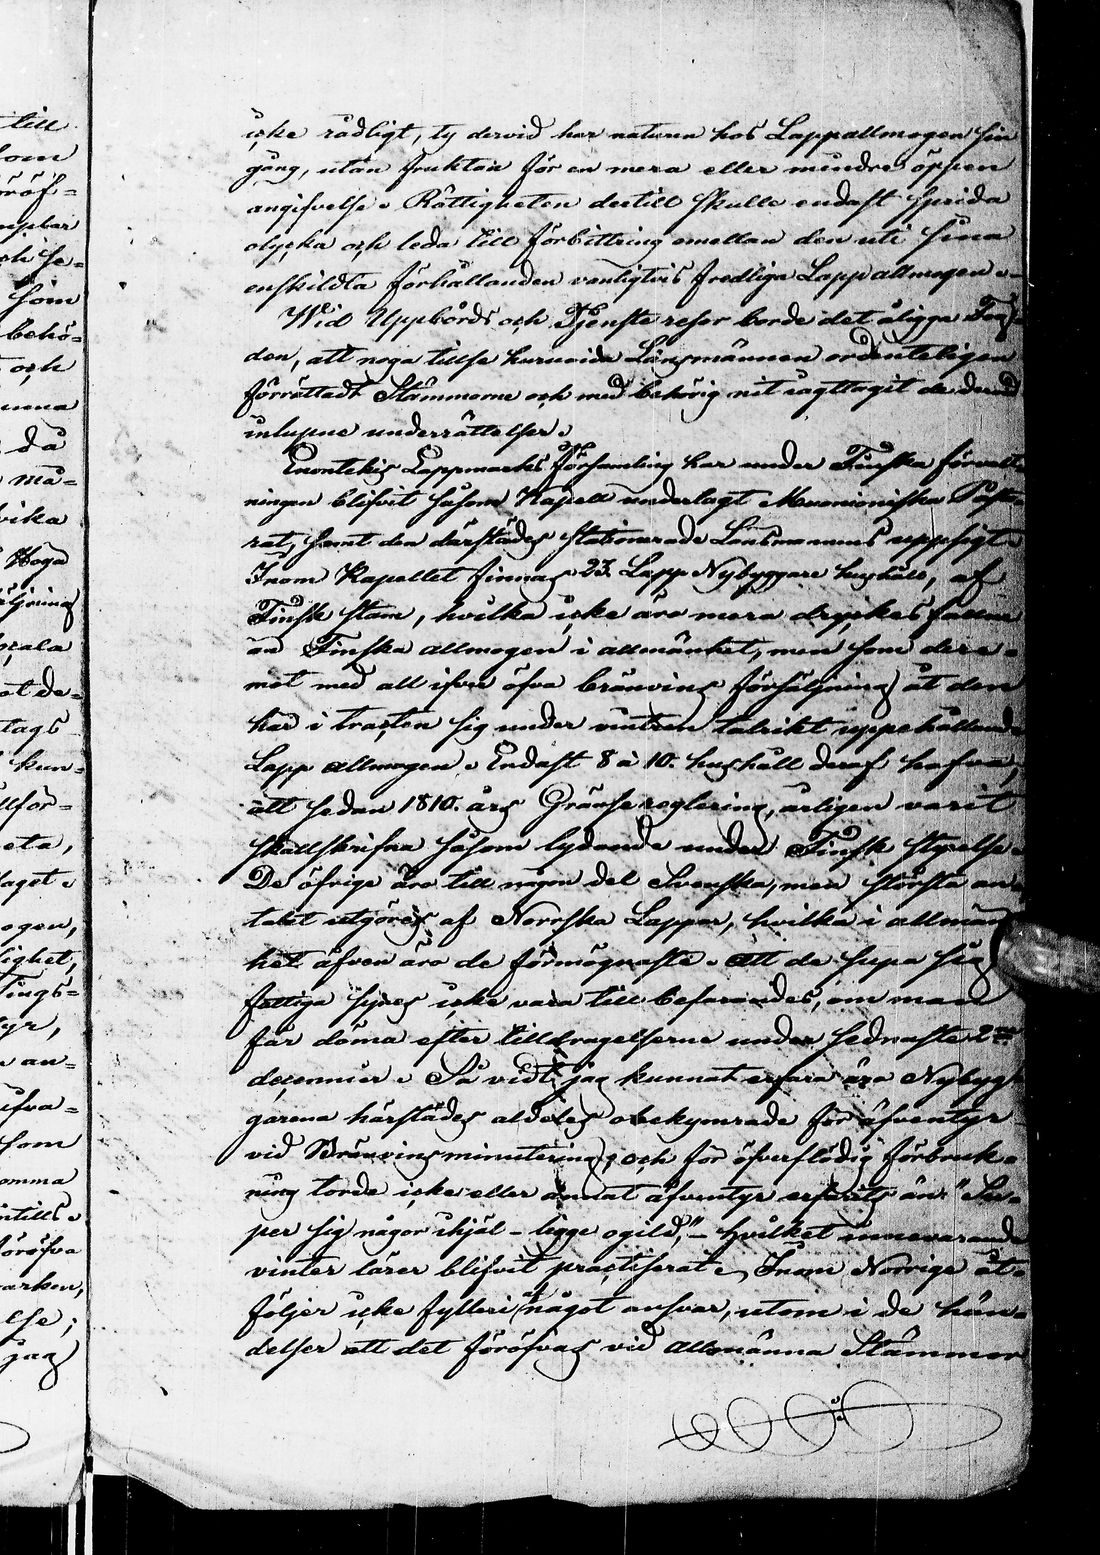 till
som
öröf-
och se-
som
behö-
och
unna
då
må-
vika
Höga
äljning
ot de-
tags
kun-
llför-
eta,
laget.
ogen,
lighet,
Tings-
an-
som
omma
intills.
öröfva
arken,
else;
jag
icke rådligt, ty dervid har naturen hos Lappallmogen sin
gång, utan fruktan för en mera eller mindre öppen
angifvelse. Rättigheten dertill skulle endast sprida
olycka och leda till förbittring emellan den uti sina
enskildta förhållanden vanligtvis fredliga Lappallmogen.
Wid Uppbörds och Tjenste resor borde det åligga Fog-
den, att noga tillse huruvida Länsmännen ordenteligen
förrättadt Stämmorne och med behörig nit iagttagit de dervid
inlupne underrättelser.
Enontekis Lappmarks församling har under Finska förvalt-
ningen blifvit såsom Kapell underlagt Muonioniska Pasto-
rat, samt den därstädes stationerade Länsmannens uppsigt.
Inom Kapellet finnas 23. Lapp Nybyggare hushåll, af
Finsk stam, hvilka icke äro mera dryckes fallne
än Finska allmogen i allmänhet, men som dere-
mot med all ifver öfva bränvins försäljning åt den
här i trakten sig under vintren talrikt uppehållande
Lapp allmogen. Endast 8 à 10. hushåll deraf hafva,
allt sedan 1810. års Gränse reglering, årligen varit
skattskrifna såsom lydande under Finsk styrelse.
De öfrige äro till någon del Svenska, men största an-
talet utgöres af Norrska Lappar, hvilka i allmän-
het äfven äro de förmögnaste. Att de supa sig
fattiga synes icke vara till befarandes, om man
får döma efter tilldragelserne under sednaste 2ne
decennier. Så vidt jag kunnat erfara äro Nybyg-
garena härstädes aldeles obekymrade för äfventyr
vid Bränvins minutering, och för öfverflödig förbruk-
ning torde icke eller annat äfventyr erfarits än "Su-
per sig någor ihjäl - ligge ogild," - hvilket innevarande
vinter lärer blifvit practiserat. Inom Norrige åt-
följer icke fylleri något ansvar, utom i de hän-
delser att det föröfvas vid Allmänna Stämmor